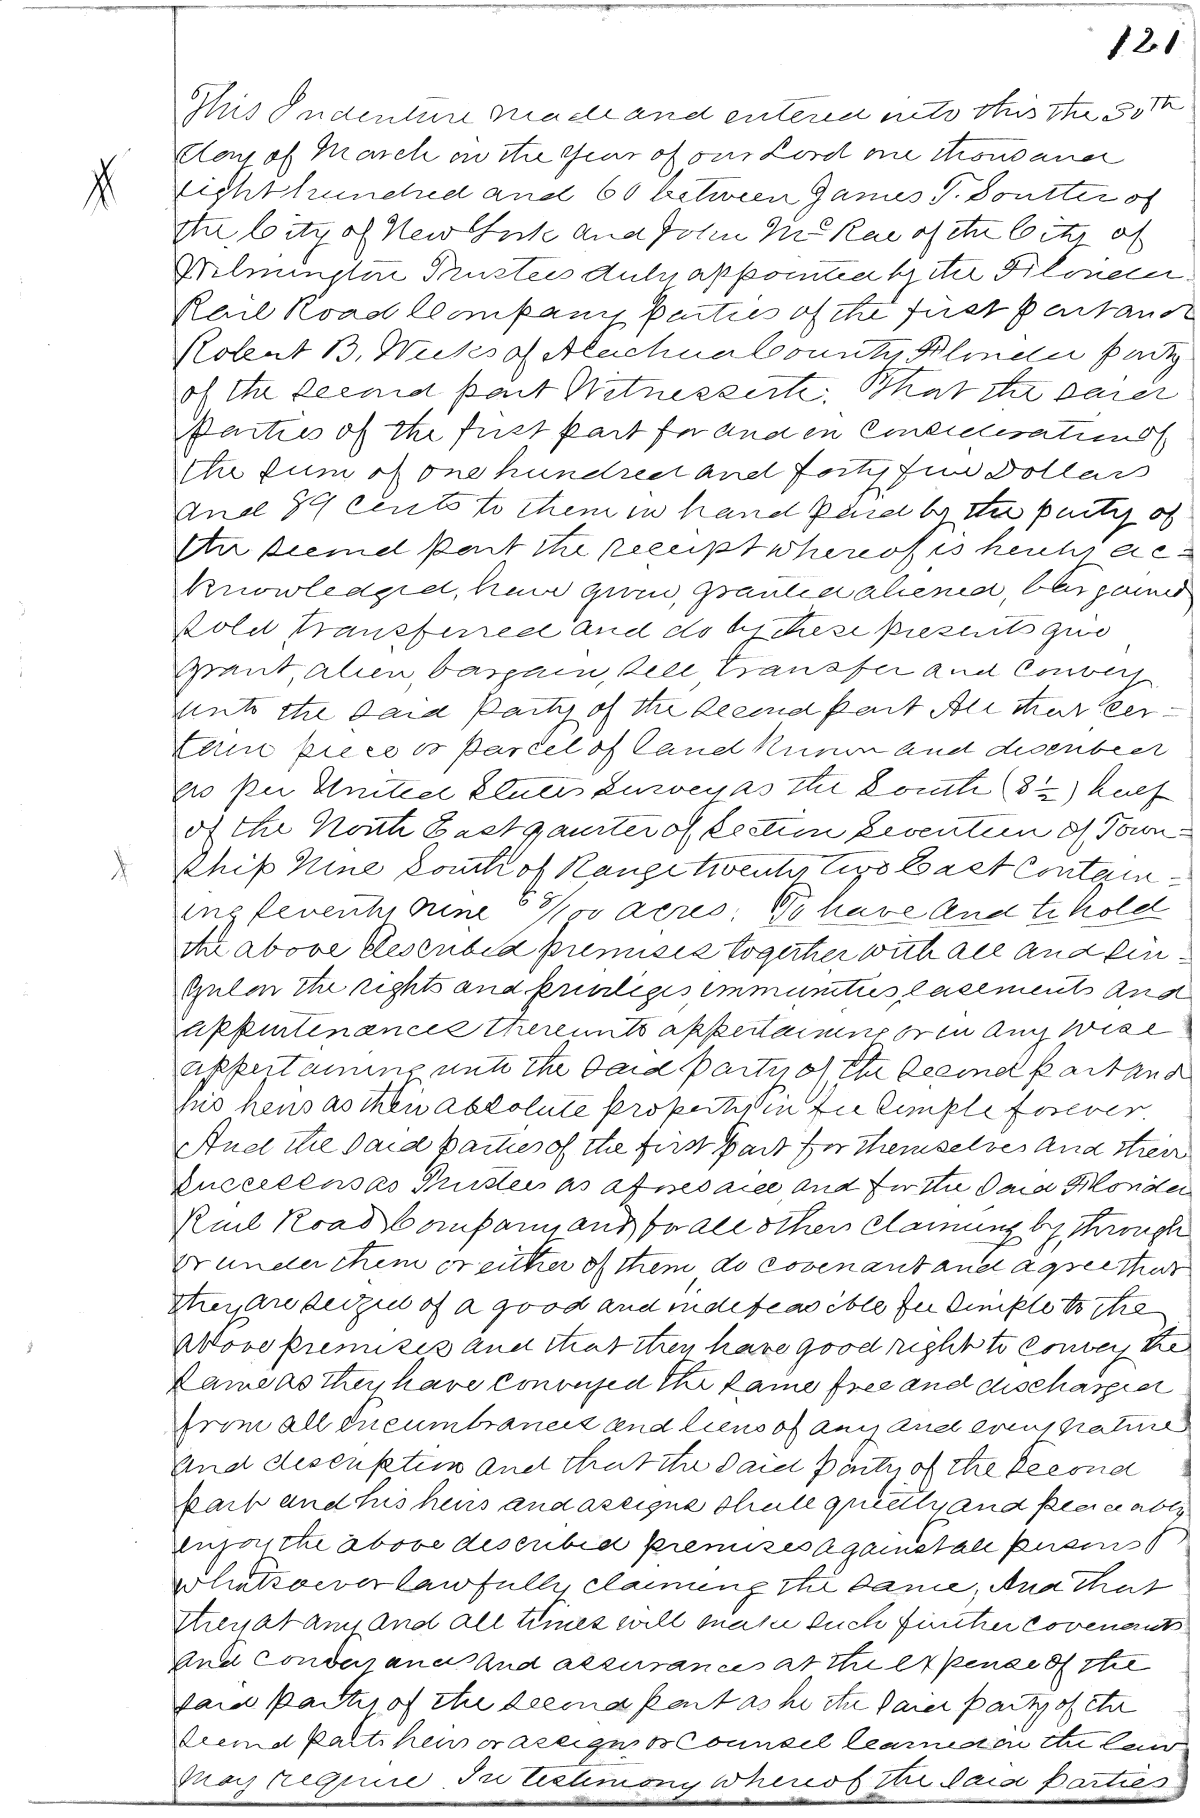 121
This Indenture made and entered into this the 30th
day of March in the Year of our Lord one thousand
eight hundred and 60 between James T. Soutter of
the City of New York and John McRae of the City of
Wilmington Trustees duly appointed by the Florida
Rail Road Company parties of the first part and
Robert B. Weeks of Alachua County Florida party
of the second part Witnesseth: That the said
parties of the first part for and in consideration of
the sum of one hundred and forty five Dollars
and 89 cents to them in hand paid by the party of
the second part the receipt whereof is hereby ac=
knowledged, have given, granted aliened, bargained
sold, transferred and do by these presents give
grant, alien, bargain, sell, transfer and convey
unto the said party of the second part All that cer=
tain piece or parcel of land known and described
as per United States Survey as the South (S ½) half
of the North East qaurter of Section Seventeen of Town=
ship Nine South of Range twenty two East Contain=
ing Seventy nine /100 acres: To have and to hold
the above described premises together with all and sin=
gular the rights and priviliges, immunities, easements and
appurtenances thereunto appertaining or in any wise
appertaining unto the said party of the second part and
his heirs as their absolute property in fee simple forever.
And the said parties of the first part for themselves and their
successors as Trustees as aforesaid, and for the said Florida
Rail Road Company and for all others claiming by, through
or under them or either of them, do covenant and agree that
they are seized of a good and indefeasible fee simple to the
above premises and that they have good right to convey the
same as they have conveyed the same free and discharged
from all encumbrances and liens of any and every nature
and description and that the said party of the second
part and his heirs and assigns shall quietly and peaceably
enjoy the above described premises against all persons
whatsoever lawfully claiming the same; And that
they at any and all times will make such further covenants
and conveyances and assurances at the expense of the
said party of the second part as he the said party of the
second parts heirs or assigns or Counsel learned in the law
may require. In testimony whereof the said parties